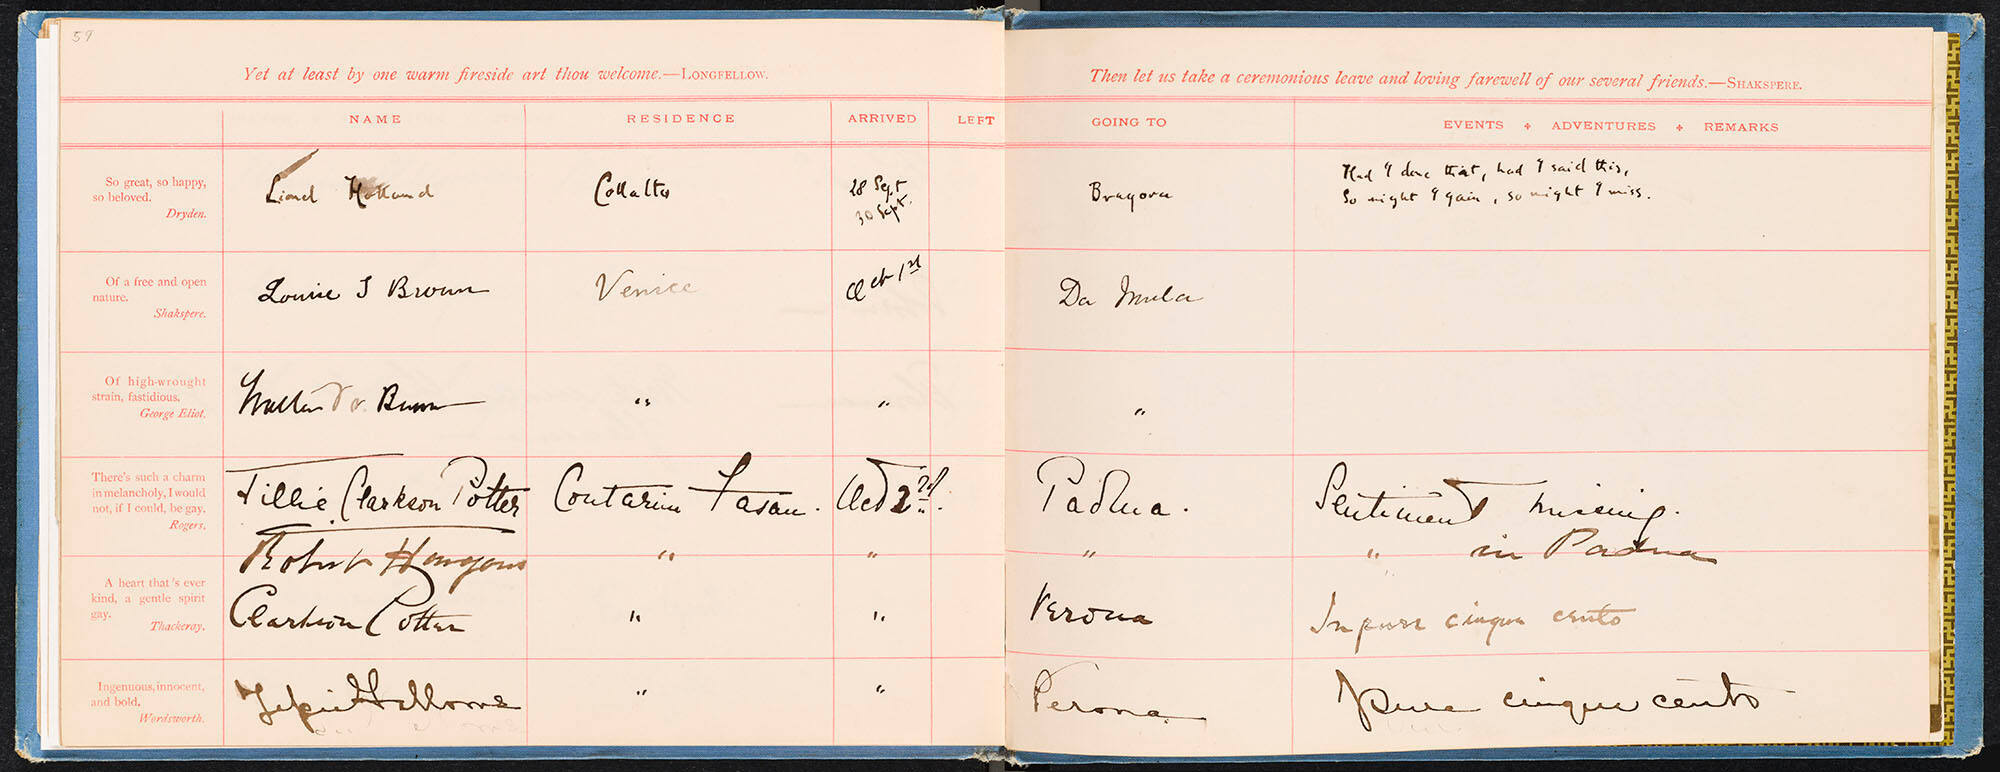 59
Yet at least by one warm fireside art thou welcome.—LONGFELLOW.
Then let us take a ceremonious leave and loving farewell of our several friends.—SHAKSPERE.
NAME RESIDENCE ARRIVED LEFT GOING TO EVENTS + ADVENTURES + REMARKS
So great, so happy,
so beloved.
Dryden.
Lionel Holland Collalto 28 Sept
30 Sept.
Bragora
Had I done that, had I said this,
So might I gain, so might I miss.
Of a free and open
nature.
Shakspere.
Louise S Brown Venice Oct 1st Da Mula
Of high-wrought
strain, fastidious.
George Eliot.
Walter Brown " " "
There's such a charm
in melancholy, I would
not, if I could, be gay.
Rogers.
Tillie Clarkson Potter Contarini Fasan. Oct 2nd. Padua. Sentiment missing.
Robert " " " " in Padua
A heart that's ever
kind, a gentle spirit
gay.
Thackeray.
Clarkson Potter " " Verona cinque cento
Ingenuous, innocent,
and bold.
Wordsworth.
" " Verona pure cinque cento